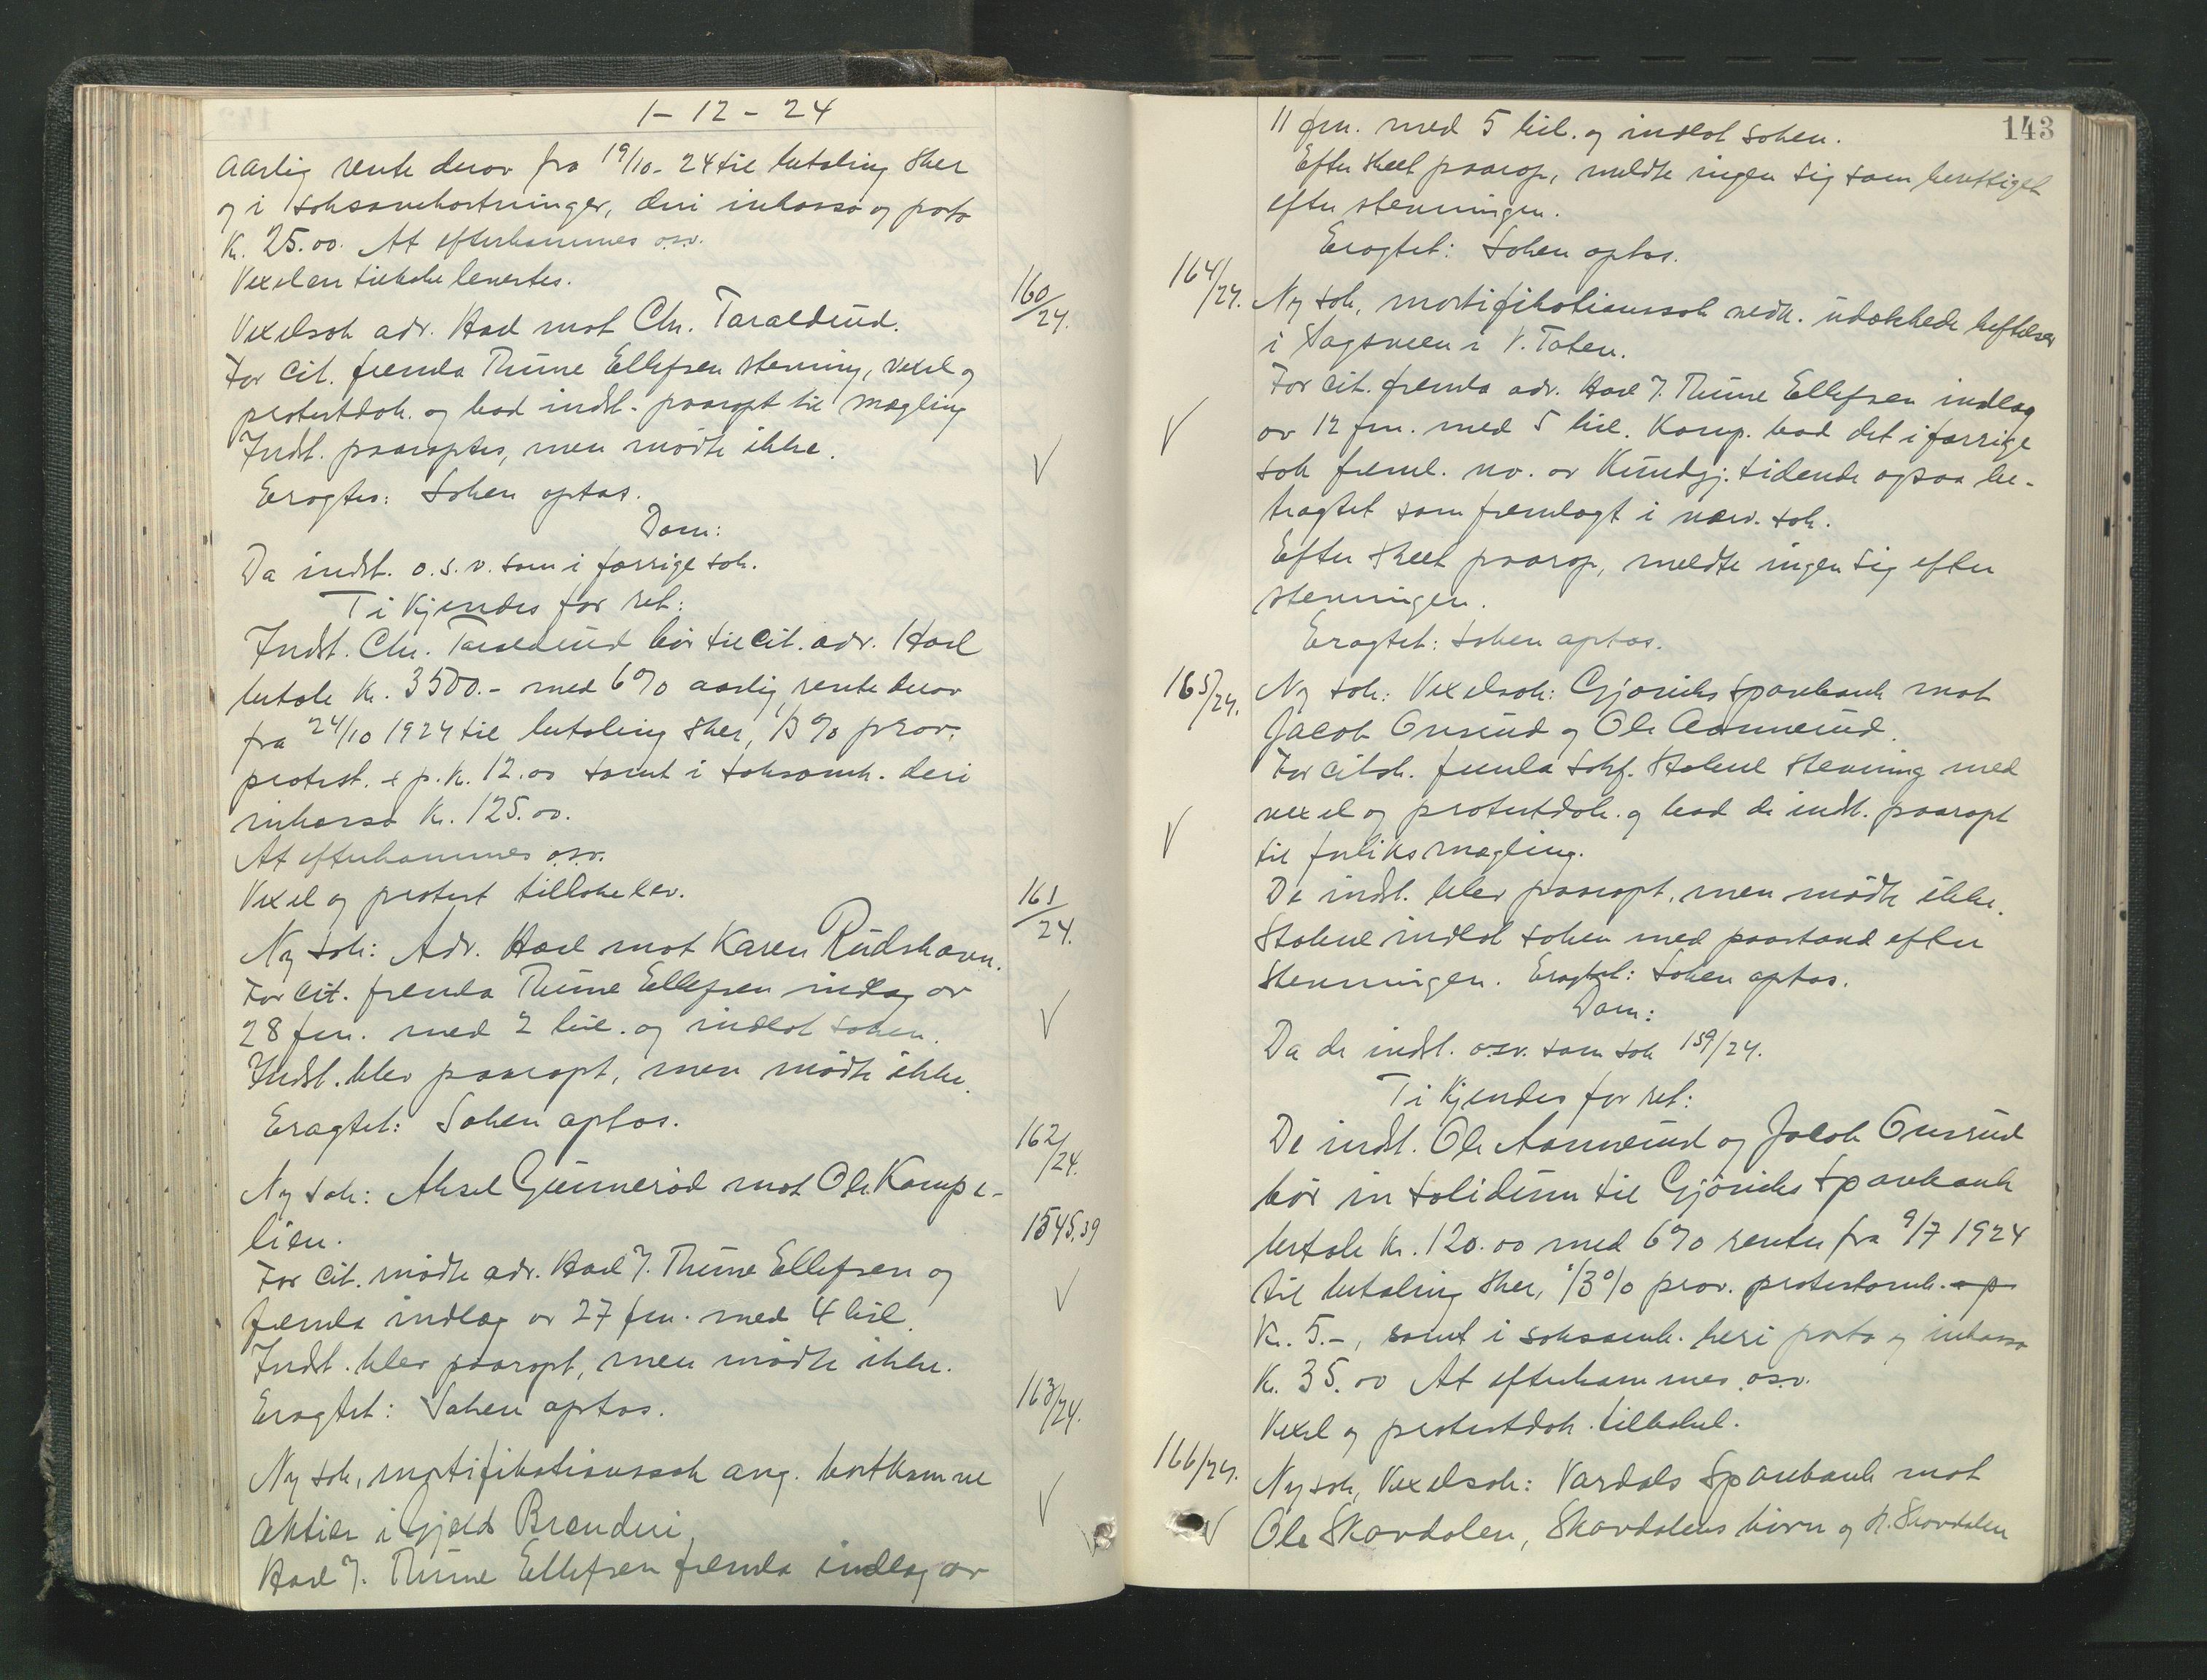 1-12-24
aarlig rente derav fra 19/10-24 til betaling sker
og i saksomkostninger, deri inkasso og porto
Kr. 25.00. At efterkommes o.s.v.
Vexelen tilbakelevertes.
160/24.
Vexelsak adv. Hoel mot Chr. Taraldrud.
For cit. fremla Thune Ellefsen stevning, vexel og
protestdok. og bad indst. paaropt til mægling
Indst. paaroptes, men mødte ikke.
Eragtes: Saken optas.
Dom:
Da indst. o.s.v. som i forrige sak.
Ti kjendes for ret:
Indst. Chr. Taraldrud bør til cit. adv. Hoel
betale Kr. 3500.- med 6% aarlig rente derav
fra 24/10 1924 til betaling sker, 1/3% prov.
protest. + p. k. 12.00 samt i saksomk. deri
inkasso Kr. 125.00.
At efterkommes o.s.v.
Vexel og protest tilbakelev.
161/24.
Ny sak: Adv. Hoel mot Karen Rudshavn.
For cit. fremla Thune Ellefsen indlæg av
28 fm. med 2 bil. og indlot saken.
Indst. blev paaropt, men mødte ikke.
Eragtet: Saken optas.
162/24.
Ny sak: Aksel Gunnerød mot Ole Kampe-
lien.
1545.39
For cit. mødte adv. Hoel f. Thune Ellefsen og
fremla indlæg av 27 fm. med 4 bil.
Indst. blev paaropt, men mødte ikke.
Eragtet: Saken optas.
163/24.
Ny sak, mortifikationssak ang. bortkomne
aktier i Gjølds Brenderi.
Hoel f. Thune Ellefsen fremla indlæg av
143
11 fm. med 5 bil. og indlot saken.
Efter skeet paarop, meldte ingen sig som berettiget
efter stevningen.
Eragtet: Saken optas.
164/24.
Ny sak, mortifikationssak vedk. udækkede heftelser
i Sagsveen i V. Toten.
For cit. fremla adv. Hoel f. Thune Ellefsen indlæg
av 12 fm. med 5 bil. Komp. bad det i forrige
sak freml. no. av Kundgj. tidende ogsaa be-
tragtet som fremlagt i nærv. sak.
Efter skeet paarop, meldte ingen sig efter
stevningen.
Eragtet: Saken optas.
165/24.
Ny sak: Vexelsak: Gjøviks Sparebank mot
Jacob Onsrud og Ole Aannerud.
For citsk. fremla sakf. Stabell stevning med
vexel og protestdok. og bad de indst. paaropt
til forliksmægling.
De indst. blev paaropt, men mødte ikke.
Stabell indlot saken med paastand efter
stevningen. Eragtet: Saken optas.
Dom:
Da de indst. o.s.v. som sak 159/24.
Ti kjendes for ret:
De indst. Ole Aannerud og Jacob Onsrud
bør in solidum til Gjøviks Sparebank
betale Kr. 120.00 med 6% renter fra 9/7 1924
til betaling sker, 1/3% prov. protestomk. o p
Kr. 5.-, samt i saksomk. heri porto og inkasso
Kr. 35.00 At efterkommes o.s.v.
Vexel og protestdok. tilbakel.
166/24.
Ny sak, Vexelsak: Vardals Sparebank mot
Ole Skavdalen, Skavdalens birn og H. Skavdalen